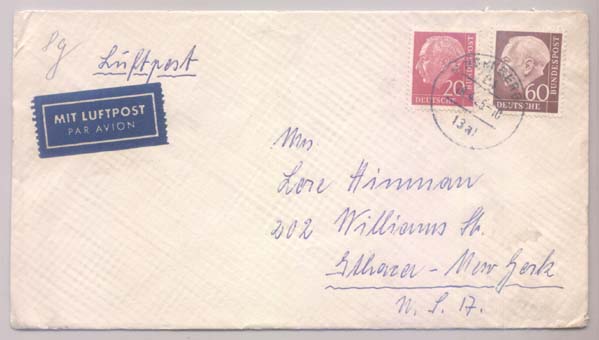 8g
Luftpost
MIT LUFTPOST
PAR AVION
20
DEUTSCHE BUNDESPOST
60
DEUTSCHE BUNDESPOST
Mrs.
Lore Hinman
202 Williams St.
Ithaca - New York
U. S. A.